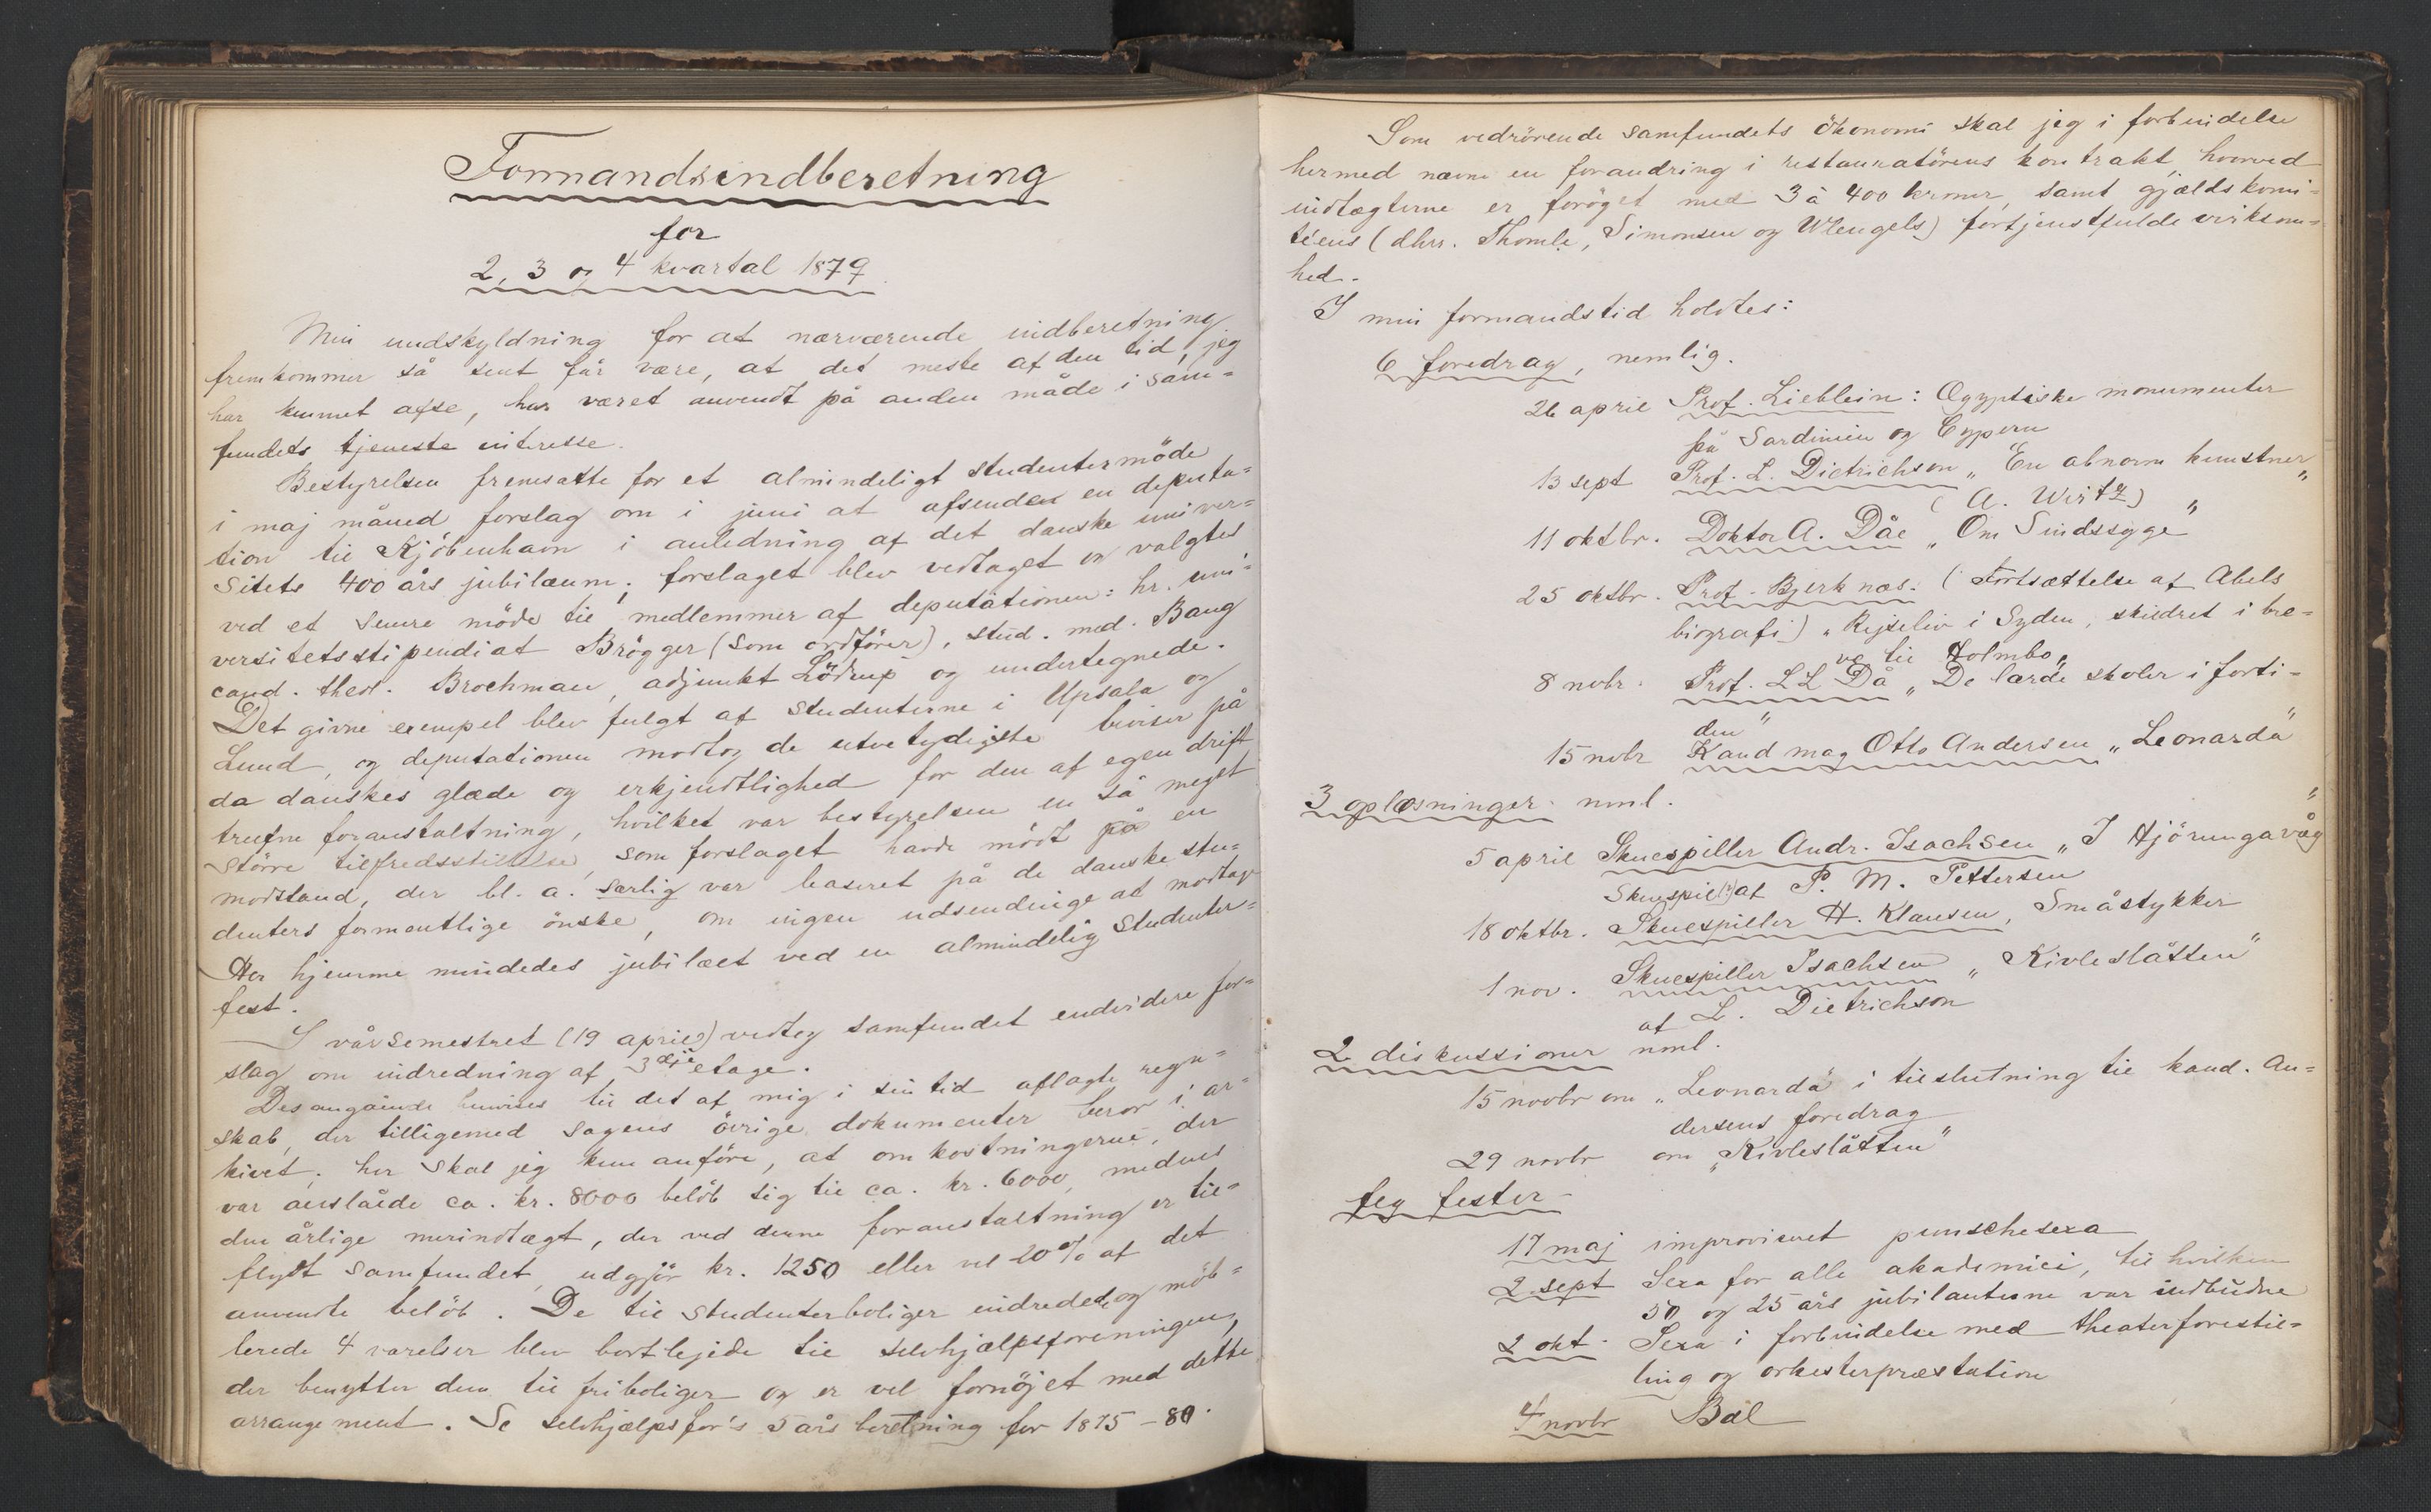 Formandsindberetning
for
2, 3 og 4 kvartal 1879.
Min undskyldning for at nærværende indberetning
fremkommer så sent får være, at det meste af den tid, jeg
har kunnet afse, har været anvendt på anden måde i sam=
fundets tjeneste interesse.
Bestyrelsen fremsatte for et almindeligt studentermöde
i maj måned forslag om i juni at afsenden en deputa=
tion til Kjöbenhavn i anledning af det danske univer=
sitets 400 års jubilæum; forslaget blev vedtaget og valgtes
ved et senere möde til medlemmer af deputationen: hr. uni=
versitetsstipendiat Brögger (som ordförer), stud. med. Bang
cand. theol. Brochman, adjunkt Lödrup og undertegnede.
Det givne exempel blev fulgt af studenterne i Upsala og
Lund, og deputationen modtog de utvetydigste beviser på
da danskes glæde og erkjendtlighed for den af egen drift
trufne foranstaltning, hvilket var bestyrelsen en så meget
större tilfredsstillelse, som forslaget havde mödt på en
modstand, der bl. a. særlig var baseret på de danske stu=
denters formentlige önske, om ingen udsendinge at modtage
Her hjemme mindedes jubilæet ved en almindelig studenter=
fest.
I vårsemestret (19 april) vedtog samfundet endvidere for=
slag om indredning af 3dje etage.
Desangående henvises til det af mig i sin tid aflagte regn=
skab, der tilligemed sagens övrige dokumenter beror i ar=
kivet; her skal jeg kun anföre, at omkostningerne, der
var anslåede ca. kr. 8000 belöb sig til ca. kr. 6000, medens
den årlige merindtægt, der ved denne foranstaltning er til=
flydt samfundet, udgjör kr. 1250 eller vel 20% af det
anvendte belöb. De til studenterboliger indredede og möb=
lerede 4 værelser blev bortlejede til selvhjælpsforeningen,
der benytter dem til friboliger og er vel fornöjet med dette
arrangement. Se selvhjælpsfor's 5 års beretning for 1875-80.
Som vedrörende samfundets ökonomi skal jeg i forbindelse
hermed nævne en forandring i restauratörens kontrakt, hvorved
indtægterne er foröget med 3 à 400 kroner, samt gjældskomi=
téens (dhrr. Thomle, Simonsen og Wlengels) fortjenstfulde virksom=
hed.
I min formandstid holdtes:
6 foredrag, nemlig.
26 april Prof. Lieblein: Ægyptiske monumenter
på Sardinien og Cypern
13 sept Prof. L. Dietrichson „En abnorm kunstner„
(A. Wirtz)
11 oktbr. Doktor A. Dåe „Om Sindssyge"
25 oktbr. Prof. Bjerknæs: (Fortsættelse af Abels
biografi) „Rejseliv i Syden, skildret i bre=
ve til Holmbo„
8 nvbr. Prof. L L Då „De lærde skoler i forti=
den"
15 nvbr Kand mag Otto Andersen „Leonarda"
3 oplæsninger nml.
5 april Skuespiller Andr. Isachsen „I Hjörungavåg"
Skuespil(!) af P. M. Pettersen
18 oktbr. Skuespiller H. Klausen, Småstykker
1 nov. Skuespiller Isachsen „Kivleslåtten"
af L. Dietrichson
2 diskussioner nml.
15 novbr om „Leonarda" i tilslutning til kand. An=
dersens foredrag
29 novbr om „Kivleslåtten"
fey fester
17 maj improviseret punschesexa
2 sept Sexa for alle akademici, til hvilken
50 og 25 års jubilanterne var indbudne
2 okt. Sexa i forbindelse med theaterforestil=
ling og orkesterpræstation
4 novbr Bal